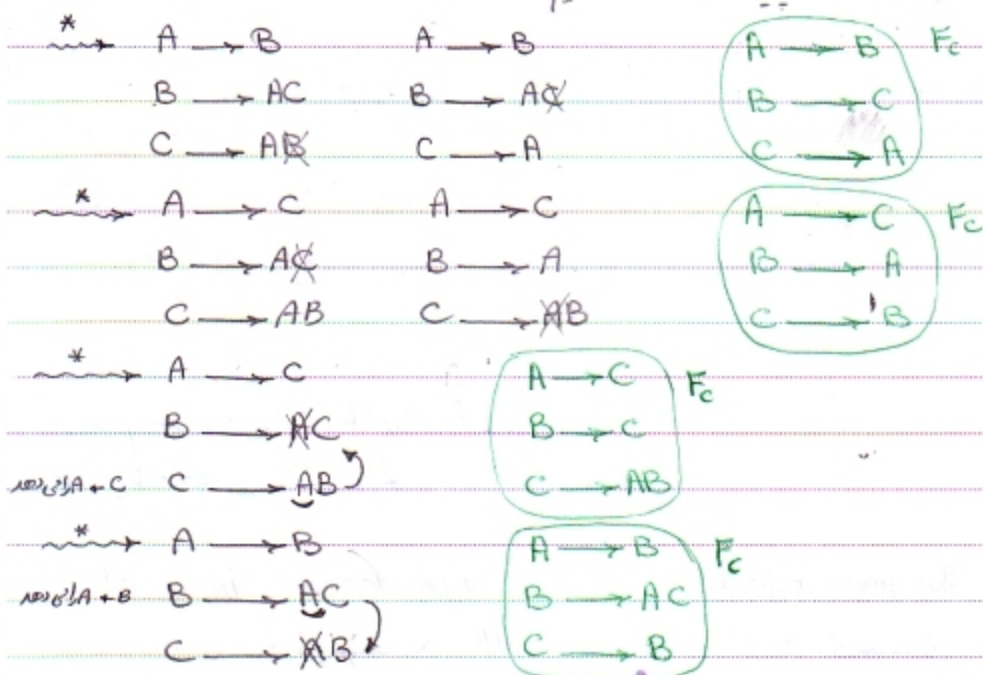 * A → B A → B A → B Fc
B → AC B → AC B → C
C → AB C → A C → A
* A → C A → C A → C Fc
B → AC B → A B → A
C → AB C → AB C → B
* A → C A → C Fc
B → AC B → C
C C → AB C → AB
* A → B A → B Fc
B B → AC B → AC
C → AB C → B